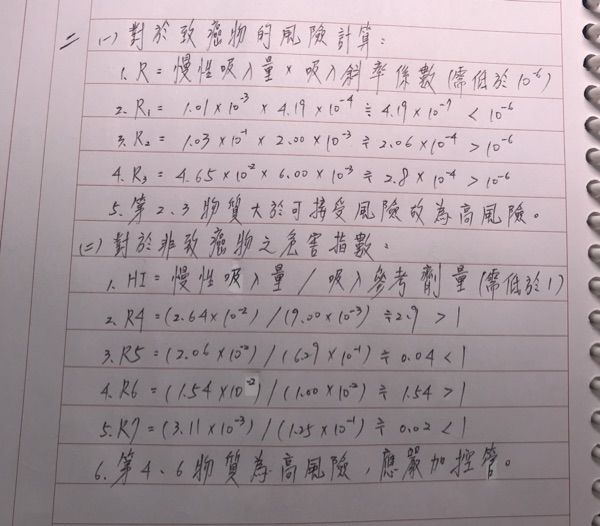 二 (一) 對於致癌物的風險計算：
1. R = 慢性吸入量 × 吸入斜率係數 (需低於 10⁻⁶)
2. R₁ = 1.01 × 10⁻³ × 4.19 × 10⁻⁴ ≒ 4.19 × 10⁻⁷ < 10⁻⁶
3. R₂ = 1.03 × 10⁻¹ × 2.00 × 10⁻³ ≒ 2.06 × 10⁻⁴ > 10⁻⁶
4. R₃ = 4.65 × 10⁻² × 6.00 × 10⁻³ ≒ 2.8 × 10⁻⁴ > 10⁻⁶
5. 第 2. 3 物質大於可接受風險故為高風險。
(二) 對於非致癌物之危害指數：
1. HI = 慢性吸入量 / 吸入參考劑量 (需低於 1)
2. R4 = (2.64 × 10⁻²) / (9.00 × 10⁻³) ≒ 2.9 > 1
3. R5 = (2.06 × 10⁻²) / (6.29 × 10⁻¹) ≒ 0.04 < 1
4. R6 = (1.54 × 10⁻²) / (1.00 × 10⁻²) ≒ 1.54 > 1
5. R7 = (3.11 × 10⁻³) / (1.25 × 10⁻¹) ≒ 0.02 < 1
6. 第 4、6 物質為高風險，應嚴加控管。